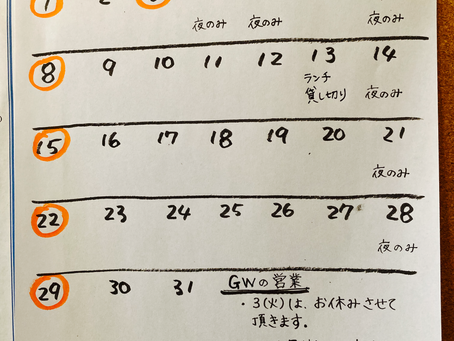 1 2
夜のみ 夜のみ 夜のみ
8 9 10 11 12 13 14
ランチ
貸し切り 夜のみ
15 16 17 18 19 20 21
夜のみ
22 23 24 25 26 27 28
夜のみ
29 30 31 GWの営業
・3(火)は、お休みさせて
頂きます。